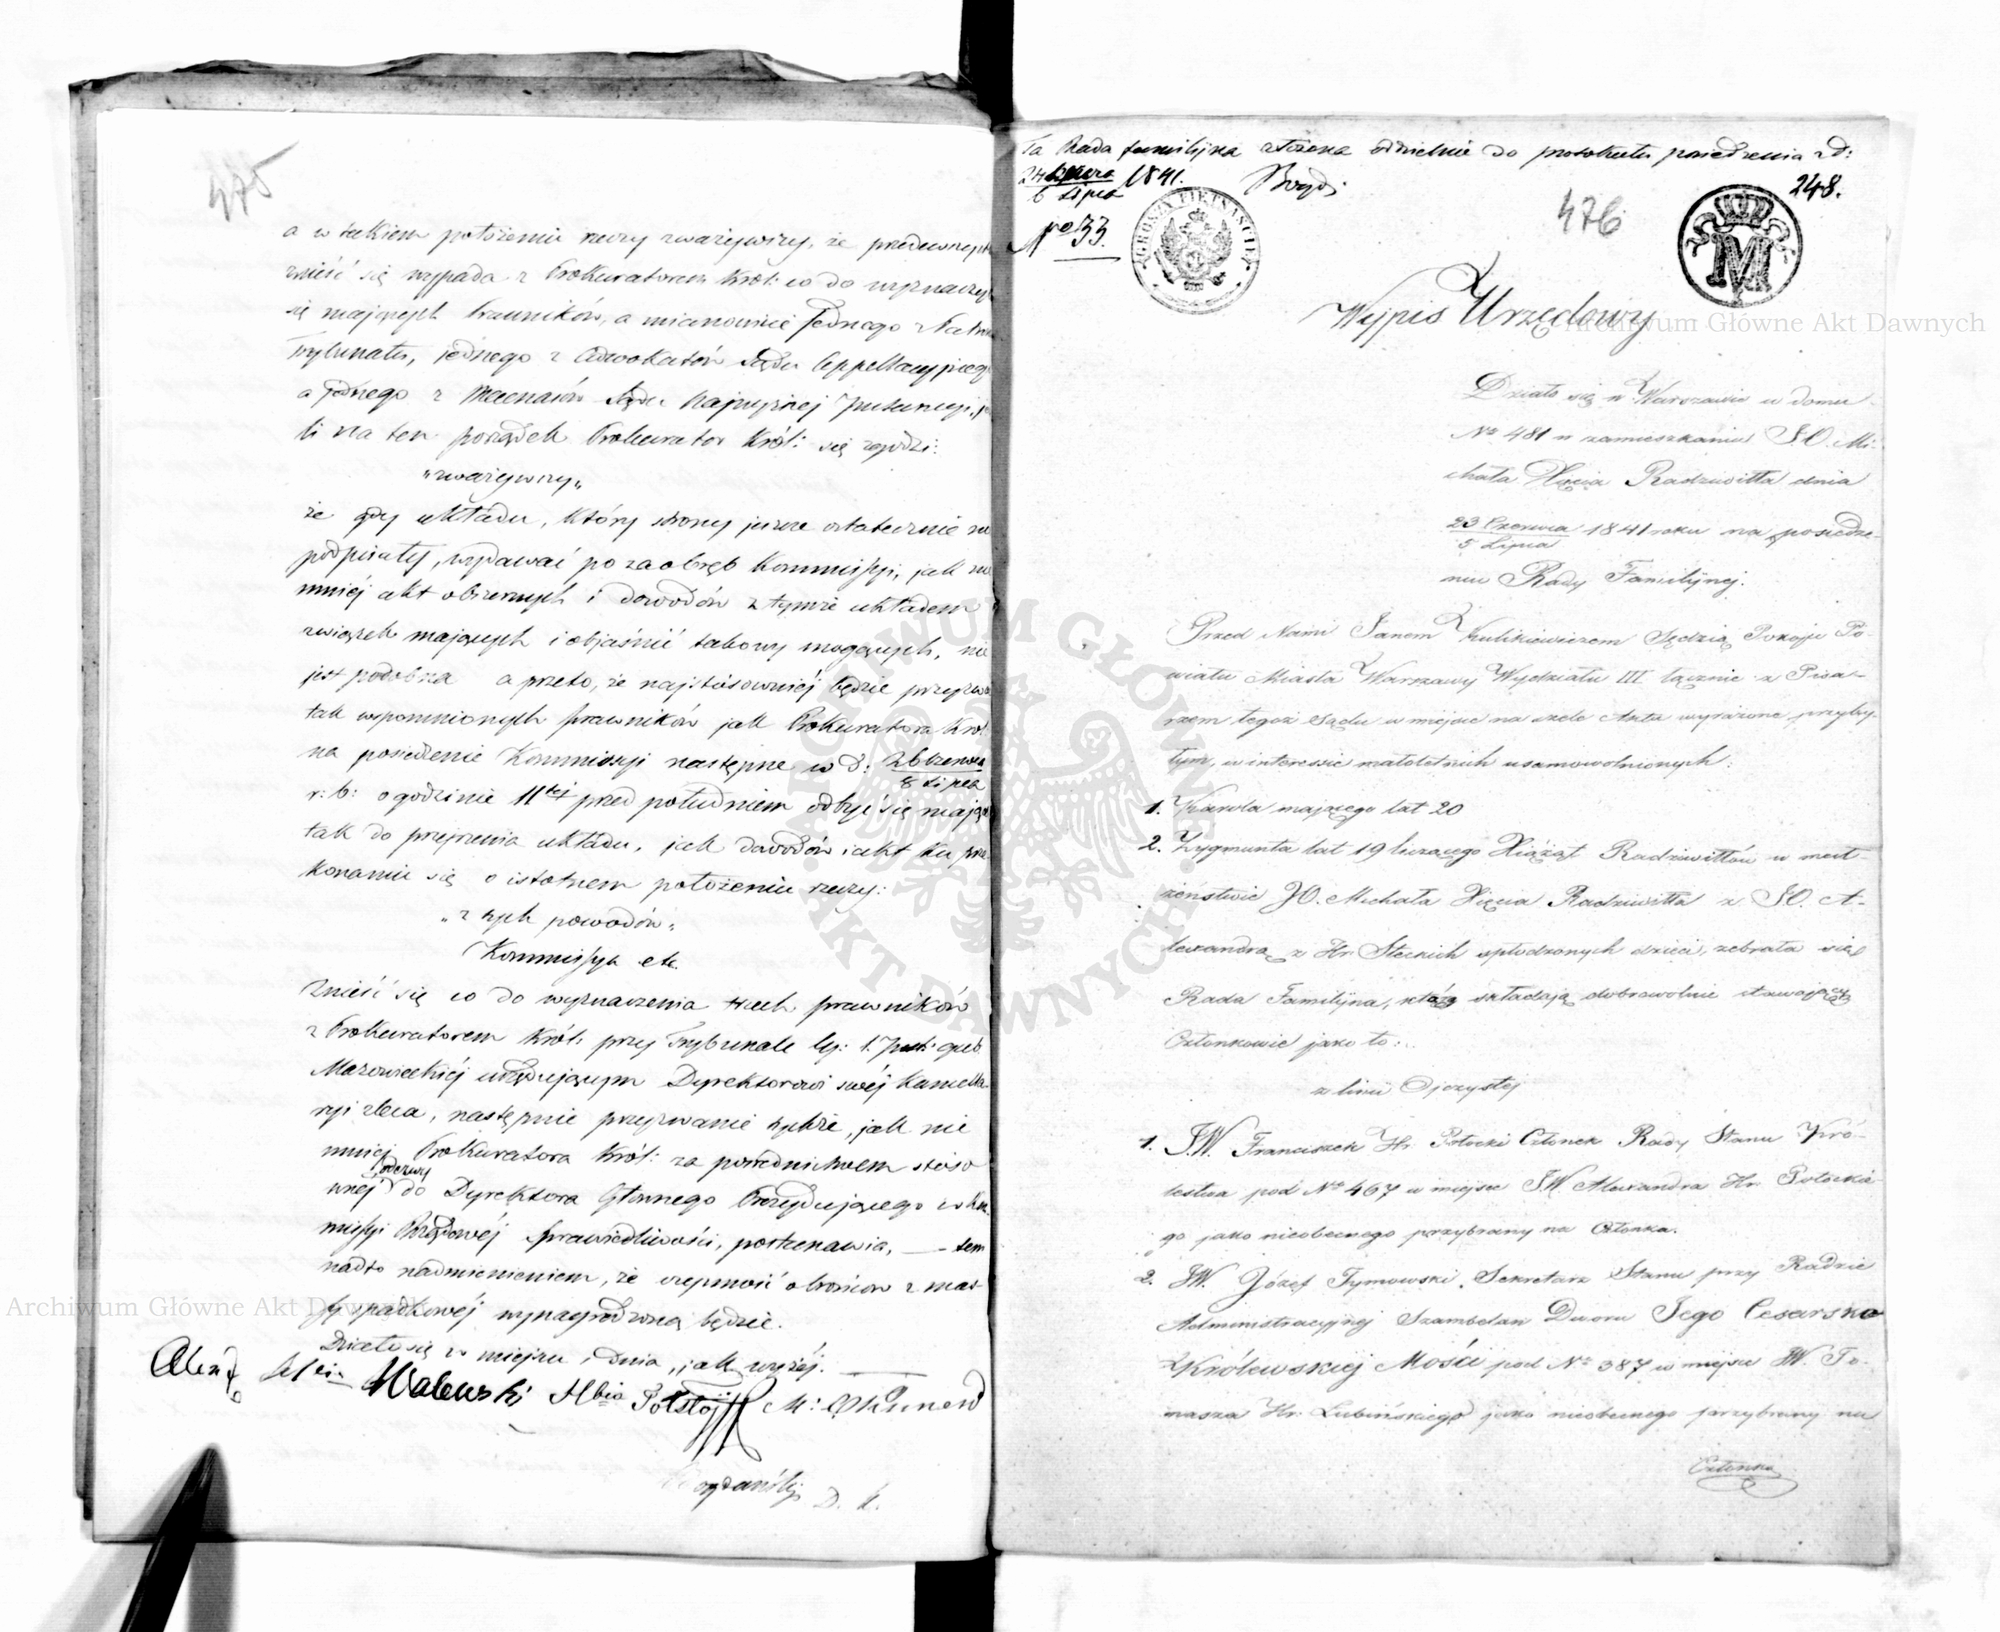 475
a w takiem położeniu rzeczy zważywszy, że przedewszyst
znieść się wypada z Prokuratorem Król: co do wyznaczyć
się mających Prawników, a mianowicie jednego z Patron
Trybunału, jednego z Adwokatów Sądu Appellacyjnego
a jednego z Mecenasów Sądu Najwyższej Instancyi, je
li na ten porządek Prokurator Król: się zgodzi:
„zważywszy„
że gdy układu, który strony jeszcze ostatecznie nie
podpisały, wydawać po za obręb Kommissyi, jak nie
mniéj akt obszernych i dowodów z tymże układem
związek mających i objaśnić takowy mogących, nie
jest podobna a przeto, że najstósowniéj będzie przyzwa
tak wspomnionych prawników jak Prokuratora Król
na posiedzenie Kommissyi następne w d: 26 Czerwca
8 Lipca
r: b: o godzinie 11tej przed południem odbyć się mające
tak do przejrzenia układu, jak dowodów i akt ku prze
konaniu się o istotnem położeniu rzeczy:
„z tych powodów„
Kommissya etc.
Znieść się co do wyznaczenia trzech prawników
z Prokuratorem Król: przy Trybunale Cy: 1. Inst: Gub
Mazowieckiéj urzędującym Dyrektorowi swéj Kancella
ryi zleca, następnie przyzwanie tychże, jak nie
mniej Prokuratora Król: za pośrednictwem stóso
odezwy
wnéj do Dyrektora Głównego Prezydującego w Kom
missyi Rządowéj Sprawiedliwości, postanawia, — z tem
nadto nadmienieniem, że czynność obrońców z mas-
sy spadkowéj wynagrodzoną będzie.
Działo się w miejscu i dnia, jak wyżéj.
Walewski Hbia Potocki M:
D. K.
Ta Rada familijna złożona oddzielnie do protokułu posiedzenia z d:
24 Czerwca
6 Lipca 1841.
248.
476
No 33.
GROSZY PIĘTNAŚCIE
M
Wypis Urzędowy
Działo się w Warszawie w domu
No 481 w zamieszkaniu JO. Mi-
chała Xięcia Radziwiłła dnia
23 Czerwca
5 Lipca 1841 roku na posiedze-
niu Rady Familijnej.
Przed Nami Janem Kulikiewiczem Sędzią Pokoju Po-
wiatu Miasta Warszawy Wydziału III łącznie z Pisa-
rzem tegoż Sądu w miejsce na czele Akta wyrażone przyby-
łym, w interessie małoletnich usamowolnionych:
1. Karola mającego lat 20
2. Zygmunta lat 19 liczącego Xiążąt Radziwiłłów w mał-
żeństwie JO. Michała Xięcia Radziwiłła z JO. A-
lexandrą z Hr. Steckich spłodzonych dzieci, zebrała się
Rada Familijna, którą składają dobrowolnie stawający
Członkowie jako to:
z linii Ojczystéj
1. JW. Franciszek Hr. Potocki Członek Rady Stanu Kró-
lestwa pod No 467 w miejsce JW. Alexandra Hr. Potockie-
go jako nieobecnego przybrany na Członka.
2. JW. Józef Tymowski, Sekretarz Stanu przy Radzie
Administracyjnej Szambelan Dworu Jego Cesarsko
Królewskiej Mości pod No 387 w miejsce JW. To-
masza Hr: Łubińskiego jako nieobecnego przybrany na
Członka
Archiwum Główne Akt Dawnych
Archiwum Główne Akt Dawnych
ARCHIWUM GŁÓWNE AKT DAWNYCH